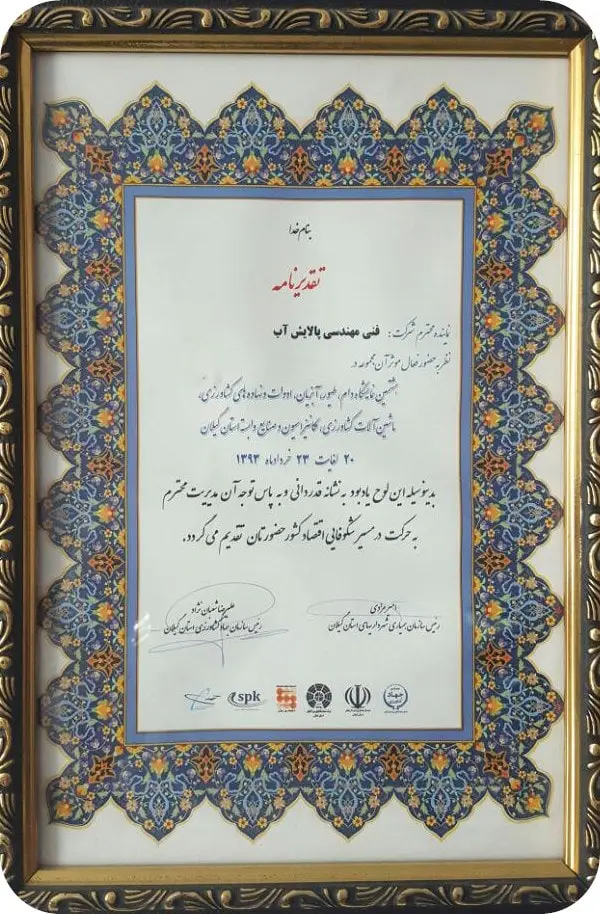 بنام خدا
تقدیرنامه
نماینده محترم شرکت: فنی مهندسی پالایش آب
نظر به حضور فعال موثر آن مجموعه در
هشتمین نمایشگاه دام، طیور، آبزیان، ادوات و نهاده های کشاورزی،
ماشین آلات کشاورزی، مکانیزاسیون و صنایع وابسته استان گیلان
۲۰ لغایت ۲۳ خردادماه ۱۳۹۳
بدینوسیله این لوح یادبود به نشانه قدردانی و به پاس توجه آن مدیریت محترم
به حرکت در مسیر شکوفایی اقتصاد کشور حضورتان تقدیم می گردد.
رئیس سازمان همیاری شهرداریهای استان گیلان
علیرضا شعبان نژاد
رئیس سازمان جهاد کشاورزی استان گیلان
جهاد
spk